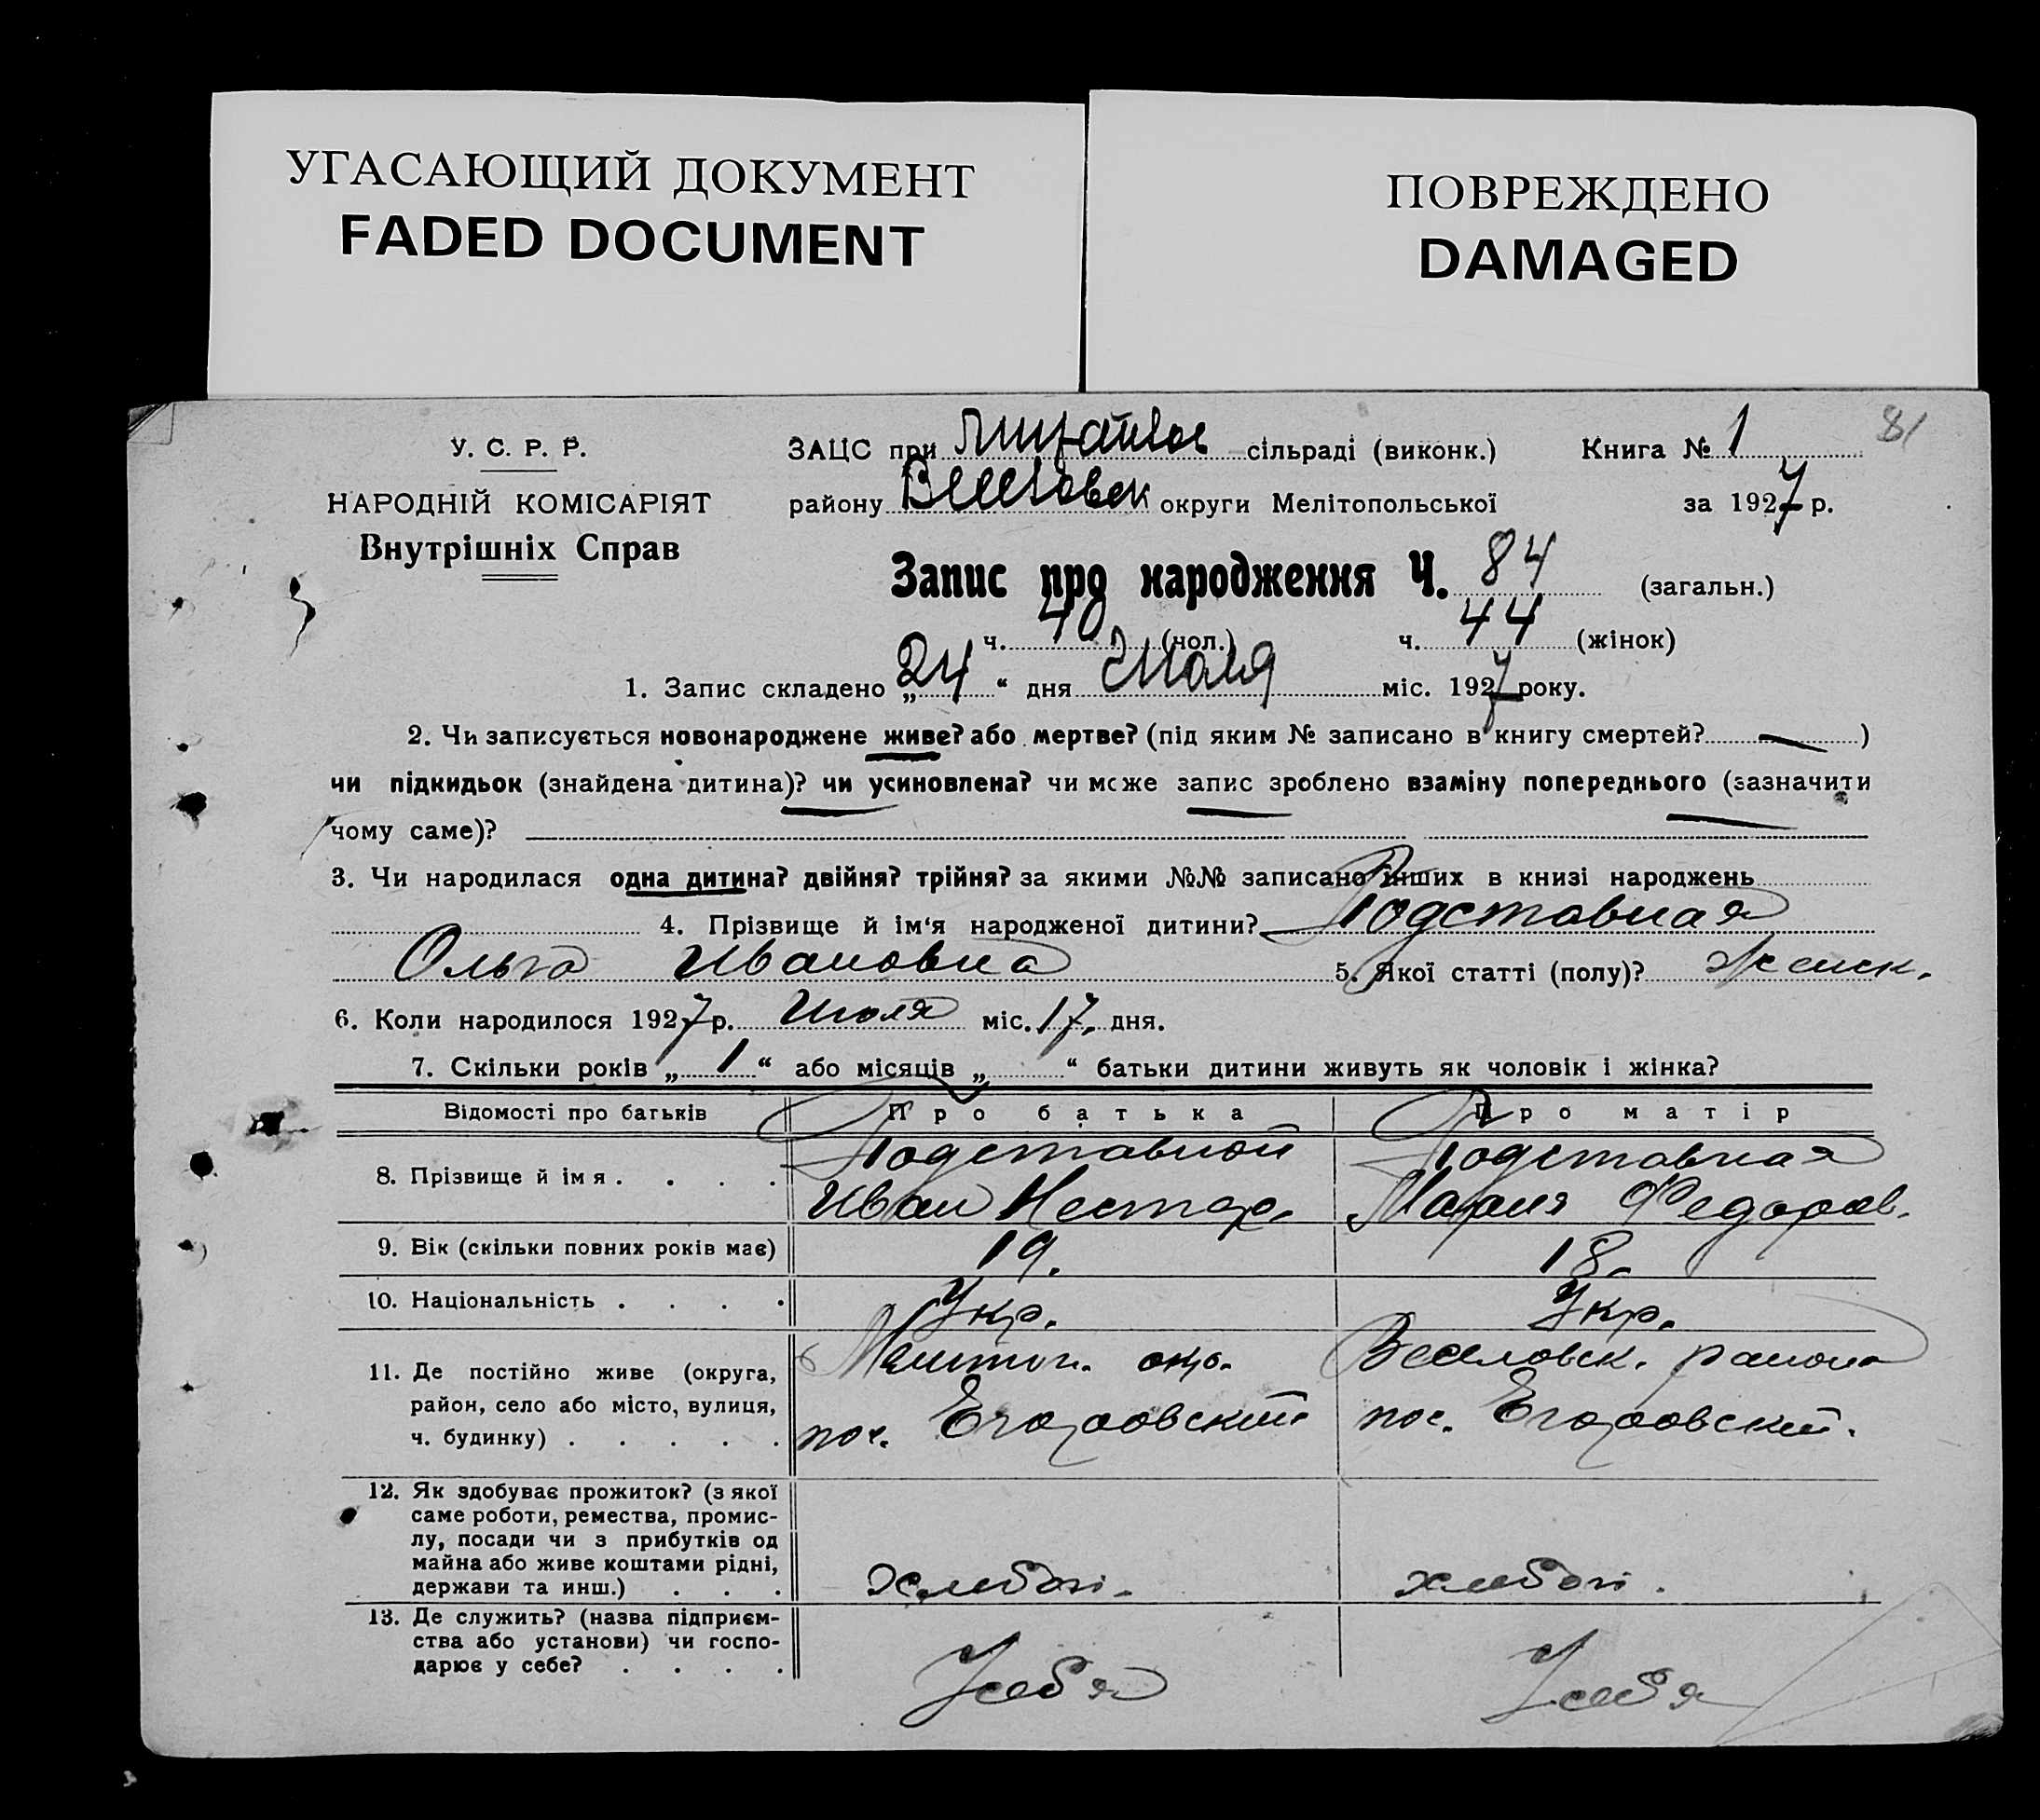 УГАСАЮЩИЙ ДОКУМЕНТ
FADED DOCUMENT
ПОВРЕЖДЕНО
DAMAGED
81
У. С. Р. Р.
НАРОДНІЙ КОМІСАРІЯТ
Внутрішніх Справ
ЗАЦС при сільраді (виконк.) Книга № 1
району округи Мелітопольської за 1927 р.
Запис про народження Ч. 84 (загальн.)
ч. 40 (чол.) ч. 44 (жінок)
1. Запис складено „24“ дня Июля міс. 1927 року.
2. Чи записується новонароджене живе? або мертве? (під яким № записано в книгу смертей? — )
чи підкидьок (знайдена дитина)? чи усиновлена? чи може запис зроблено взаміну попереднього (зазначити
чому саме)?
3. Чи народилася одна дитина? двійня? трійня? за якими №№ записано інших в книзі народжень
4. Прізвище й ім‘я народженої дитини? Подставная
Ольга Ивановна 5. Якої статті (полу)? Женск.
6. Коли народилося 1927 р. Июля міс. 17. дня.
7. Скільки років „1“ або місяців „ “ батьки дитини живуть як чоловік і жінка?
Відомості про батьків Про батька Про матір
8. Прізвище й імя . . . . Подставной Подставная
Иван Нестор. Мария Федоров.
9. Вік (скільки повних років має) 19. 18.
10. Національність . . . . Укр. Укр.
11. Де постійно живе (округа, район, село або місто, вулиця, ч. будинку) . . . . . Мелитоп. окр. Веселовск. района
пос. Егоровский пос. Егоровский.
12. Як здобуває прожиток? (з якої
саме роботи, ремества, промис-
лу, посади чи з прибутків од
майна або живе коштами рідні,
держави та инш.) . . . хлебоп. хлебоп.
13. Де служить? (назва підприєм-
ства або установи) чи госпо-
дарює у себе? . . . . У себя У себя